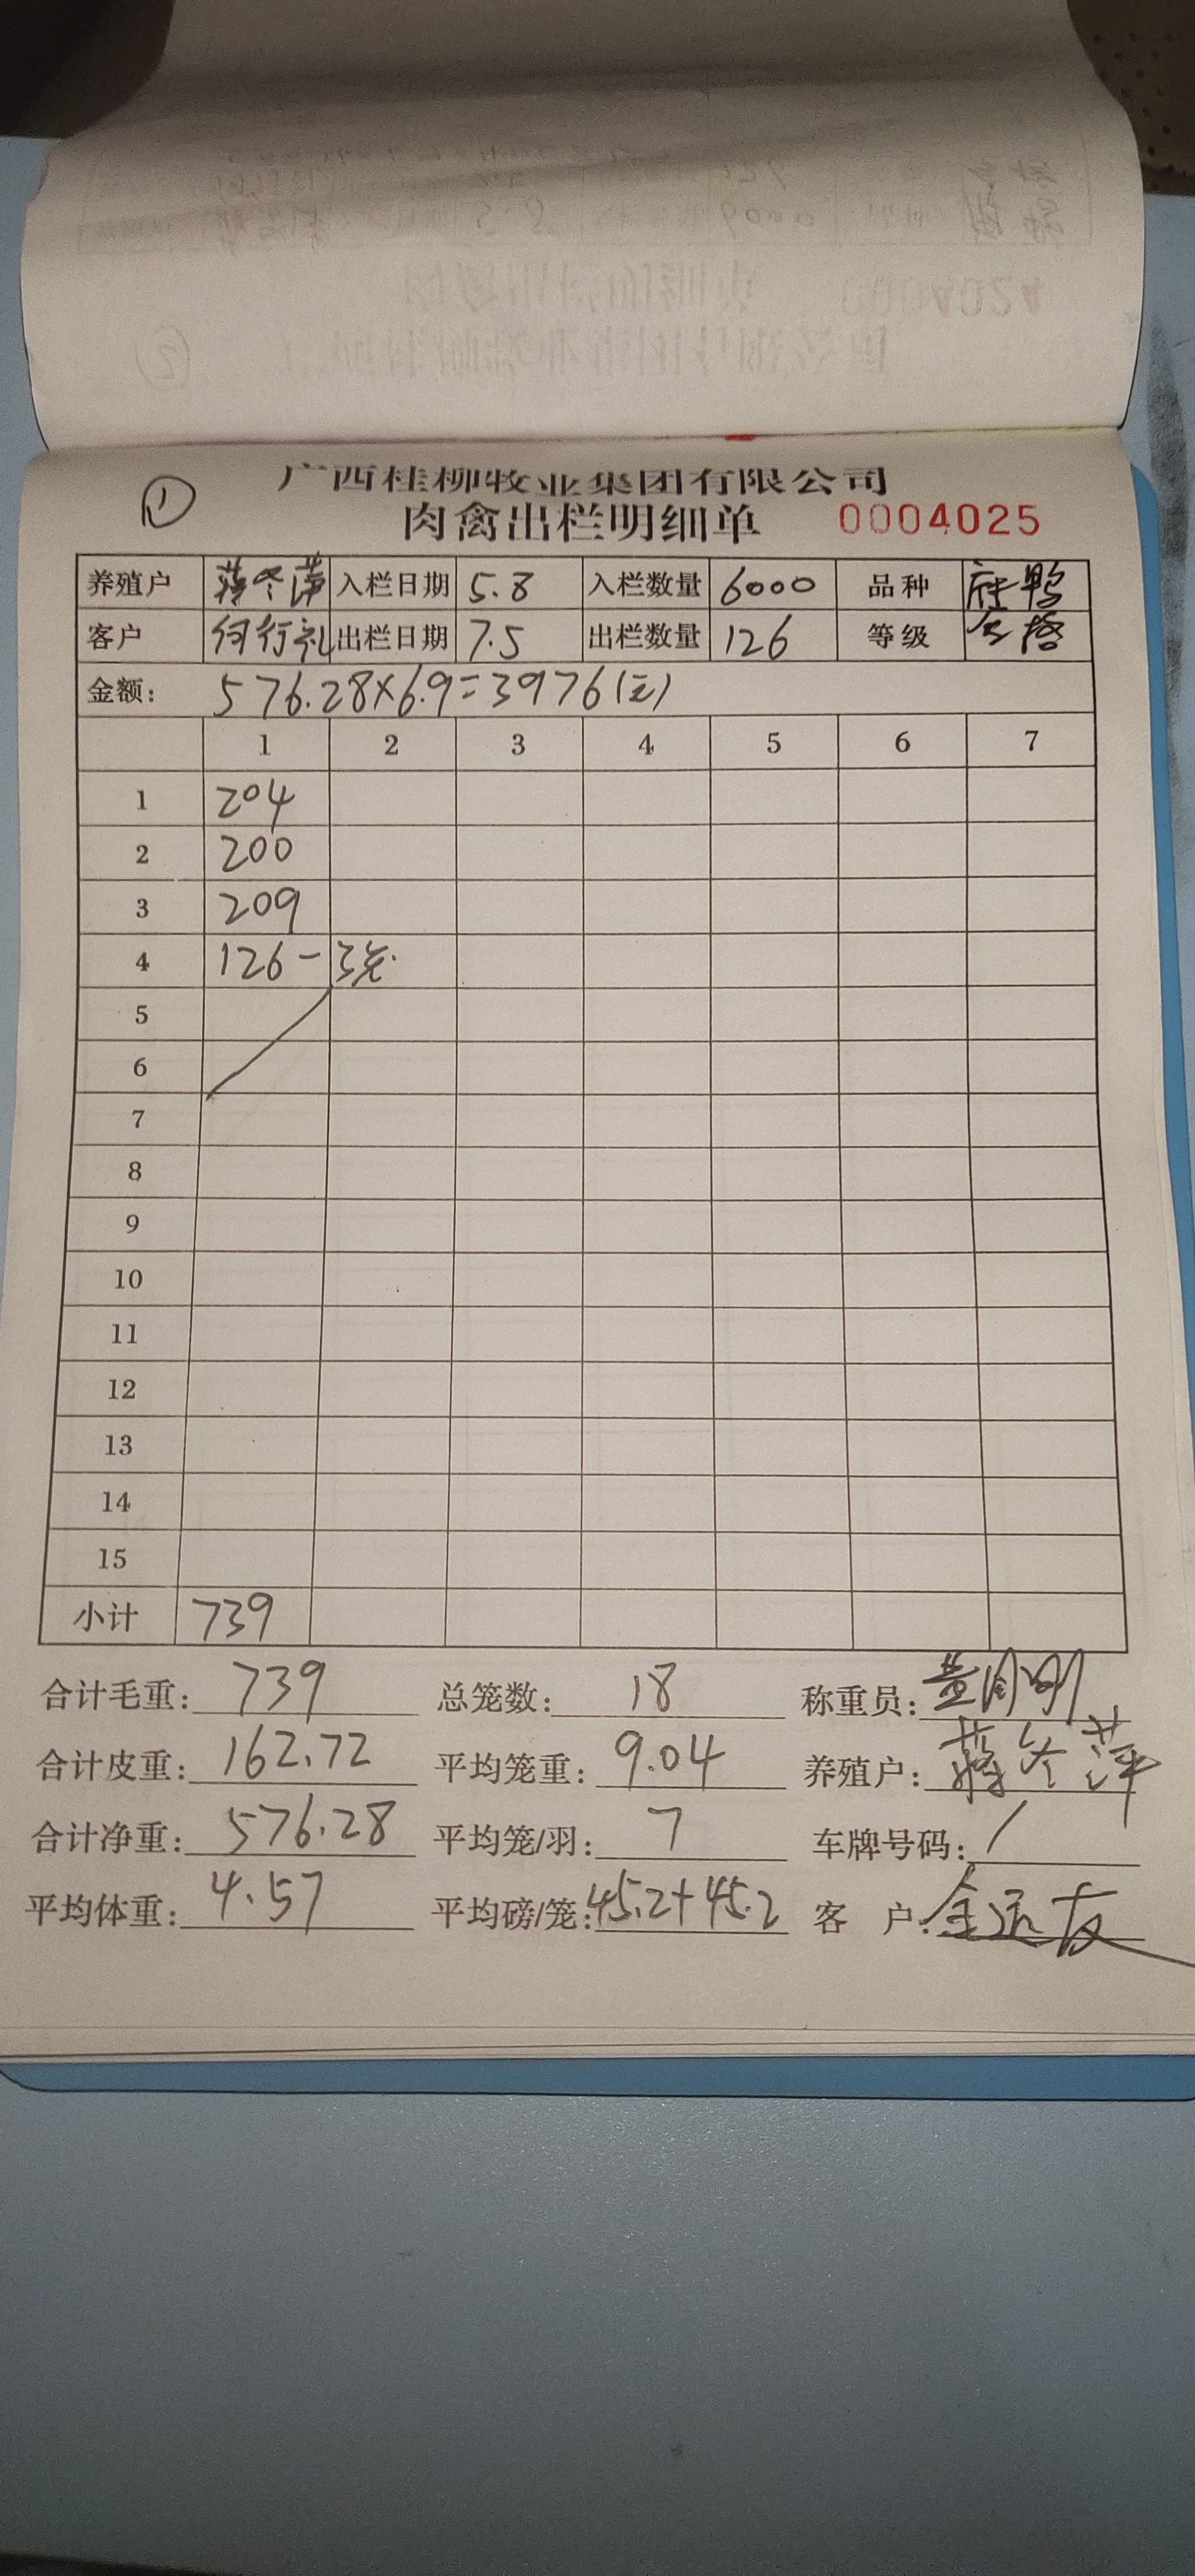 ①
广西桂柳牧业集团有限公司
肉禽出栏明细单 0004025
养殖户 蒋冬萍 入栏日期 5.8 入栏数量 6000 品种 麻鸭
客户 何行礼 出栏日期 7.5 出栏数量 126 等级 合格
金额: 576.28×6.9=3976(元)
1 2 3 4 5 6 7
1 204
2 200
3 209
4 126-3笼.
5
6
7
8
9
10
11
12
13
14
15
小计 739
合计毛重: 739 总笼数: 18 称重员:
合计皮重: 162.72 平均笼重: 9.04 养殖户: 蒋冬萍
合计净重: 576.28 平均笼/羽: 7 车牌号码: /
平均体重: 4.57 平均磅/笼: 45.2+45.2 客户: